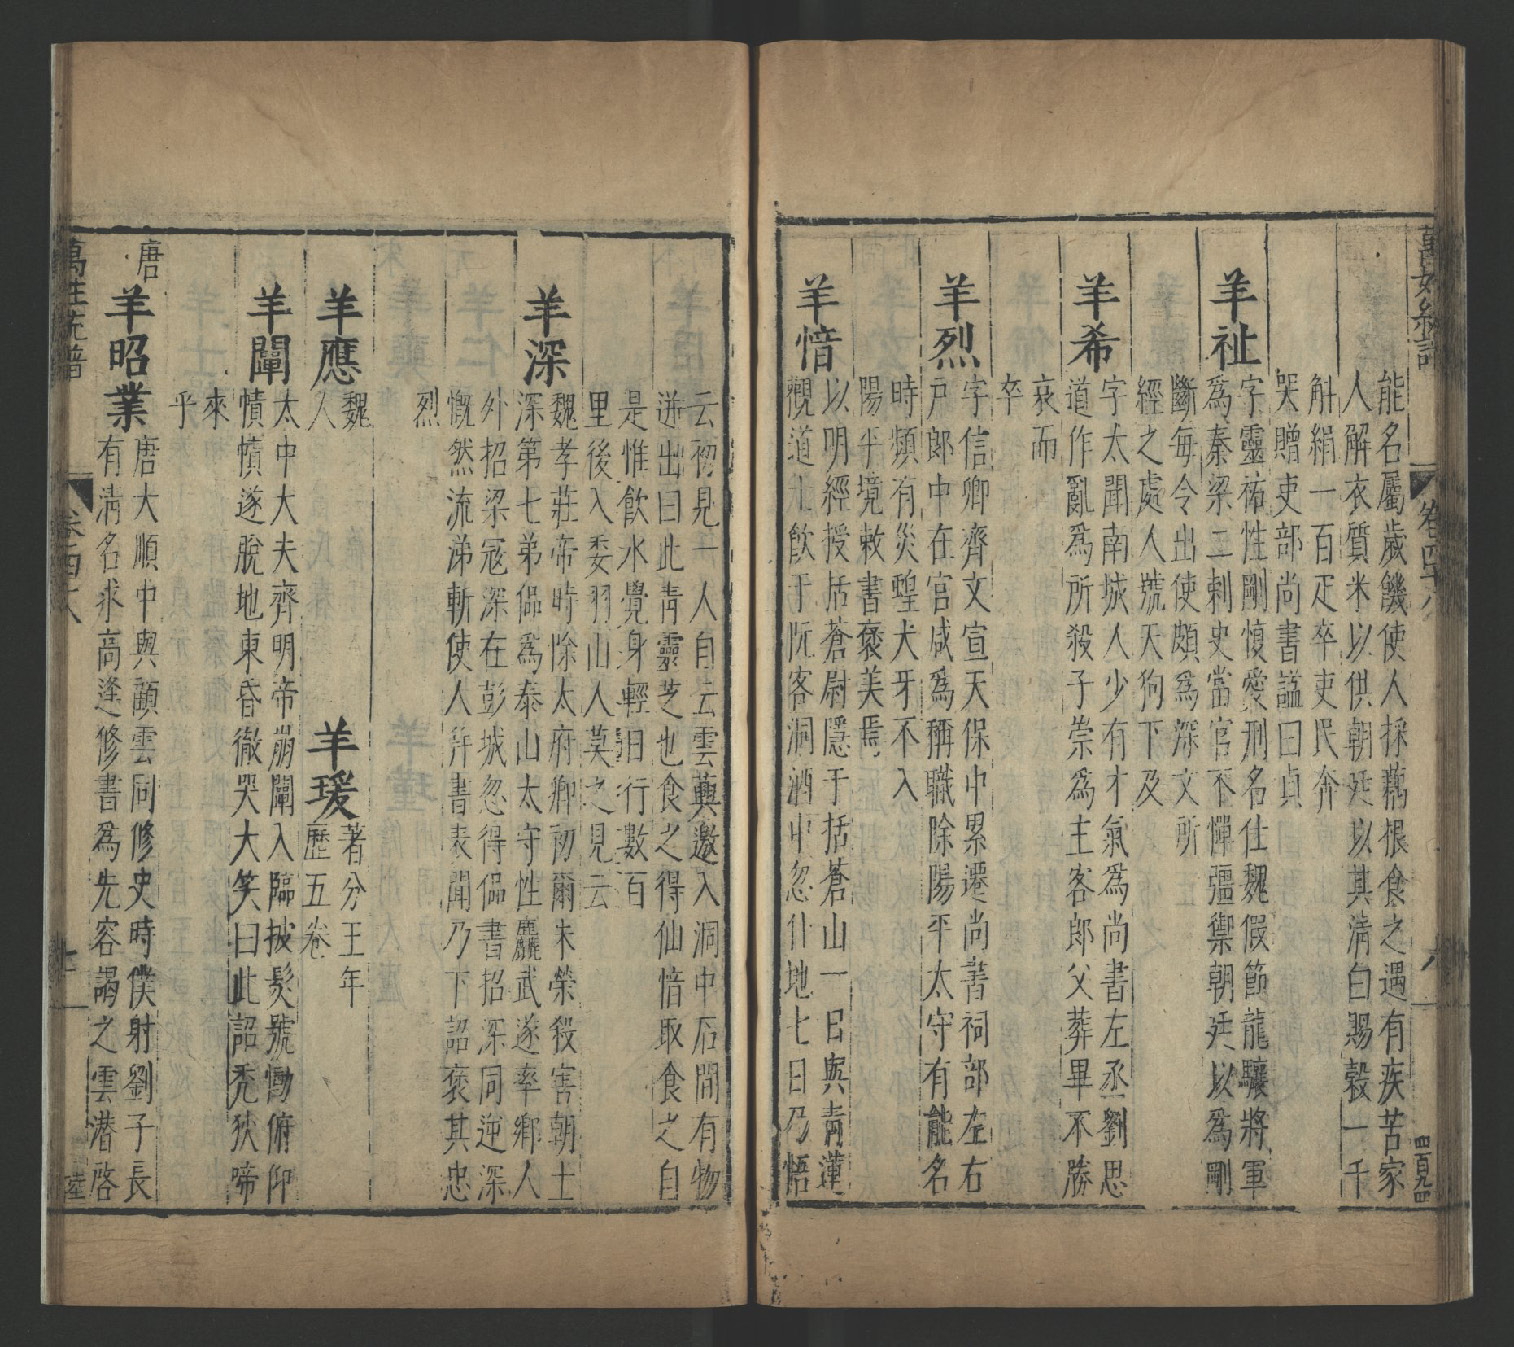 能名屬歲饑使人採藕根食之遇有疾苦家
人解衣質米以供朝廷以其清白賜穀一千
斛絹一百疋卒吏民奔
哭贈吏部尚書謚曰貞
羊祉
字靈祐性剛愎愛刑名仕魏假節龍驤將軍
為秦梁二刺史當官不憚彊禦朝廷以為剛
斷每令出使頗為深文所
經之處人號天狗下及
羊希
字太聞南城人少有才氣為尚書左丞劉思
道作亂為所殺子崇為主客郎父葬畢不勝
哀而
卒
羊烈
字信卿齊文宣天保中累遷尚書祠部左右
戶郎中在官咸為稱職除陽平太守有能名
時頻有災蝗犬牙不入
陽平境敕書褒美焉
羊愔
以明經授括蒼尉隱于括蒼山一日與青蓮
觀道士飲于阮客洞酒中忽仆地七日乃悟
云初見一人自云雲英邀入洞中石間有物
迸出曰此青靈芝也食之得仙愔取食之自
是惟飲水覺身輕日行數百
里後入委羽山人莫之見云
羊深
魏孝莊帝時除太府卿初爾朱榮殺害朝士
深第七弟偘為泰山太守性麤武遂率鄉人
外招梁寇深在彭城忽得偘書招深同逆深
慨然流涕斬使人并書表聞乃下詔褒其忠
烈
羊應
魏
人
羊瑗
著分王年
歷五卷
羊闡
太中大夫齊明帝崩闡入臨披髮號慟俯仰
憤憤遂脫地東昏徹哭大笑曰此詔禿狄啼
來
乎
唐
羊昭業
唐大順中與顧雲同修史時僕射劉子長
有清名求高逢修書為先容謁之雲潛啓
萬姓統譜
卷四十八